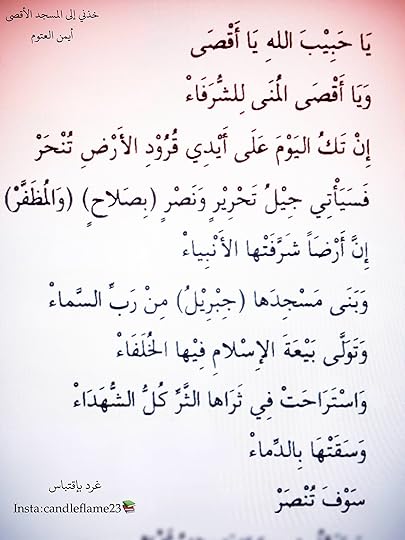 خذني إلى المسجد الأقصى
أيمن العتوم
يَا حَبِيْبَ اللهِ يَا أَقْصَى
وَيَا أَقْصَى المُنَى لِلشُّرَفَاءْ
إِنْ تَكُ اليَوْمَ عَلَى أَيْدِي قُرُوْدِ الأَرْضِ تُنْحَرْ
فَسَيَأْتِي جِيْلُ تَحْرِيْرٍ وَنَصْرٍ (بِصَلاحٍ) (وَالمُظَفَّرْ)
إِنَّ أَرْضَاً شَرَّفَتْها الأَنْبِياءْ
وَبَنَى مَسْجِدَها (جِبْرِيْلُ) مِنْ رَبِّ السَّماءْ
وَتَوَلَّى بَيْعَةَ الإِسْلامِ فِيْها الخُلَفَاءْ
وَاسْتَرَاحَتْ فِي ثَرَاها الثَّرِّ كُلُّ الشُّهَدَاءْ
وَسَقَتْهَا بِالدِّماءْ
سَوْفَ تُنْصَرْ
غرد بإقتباس
Insta:candleflame23📚